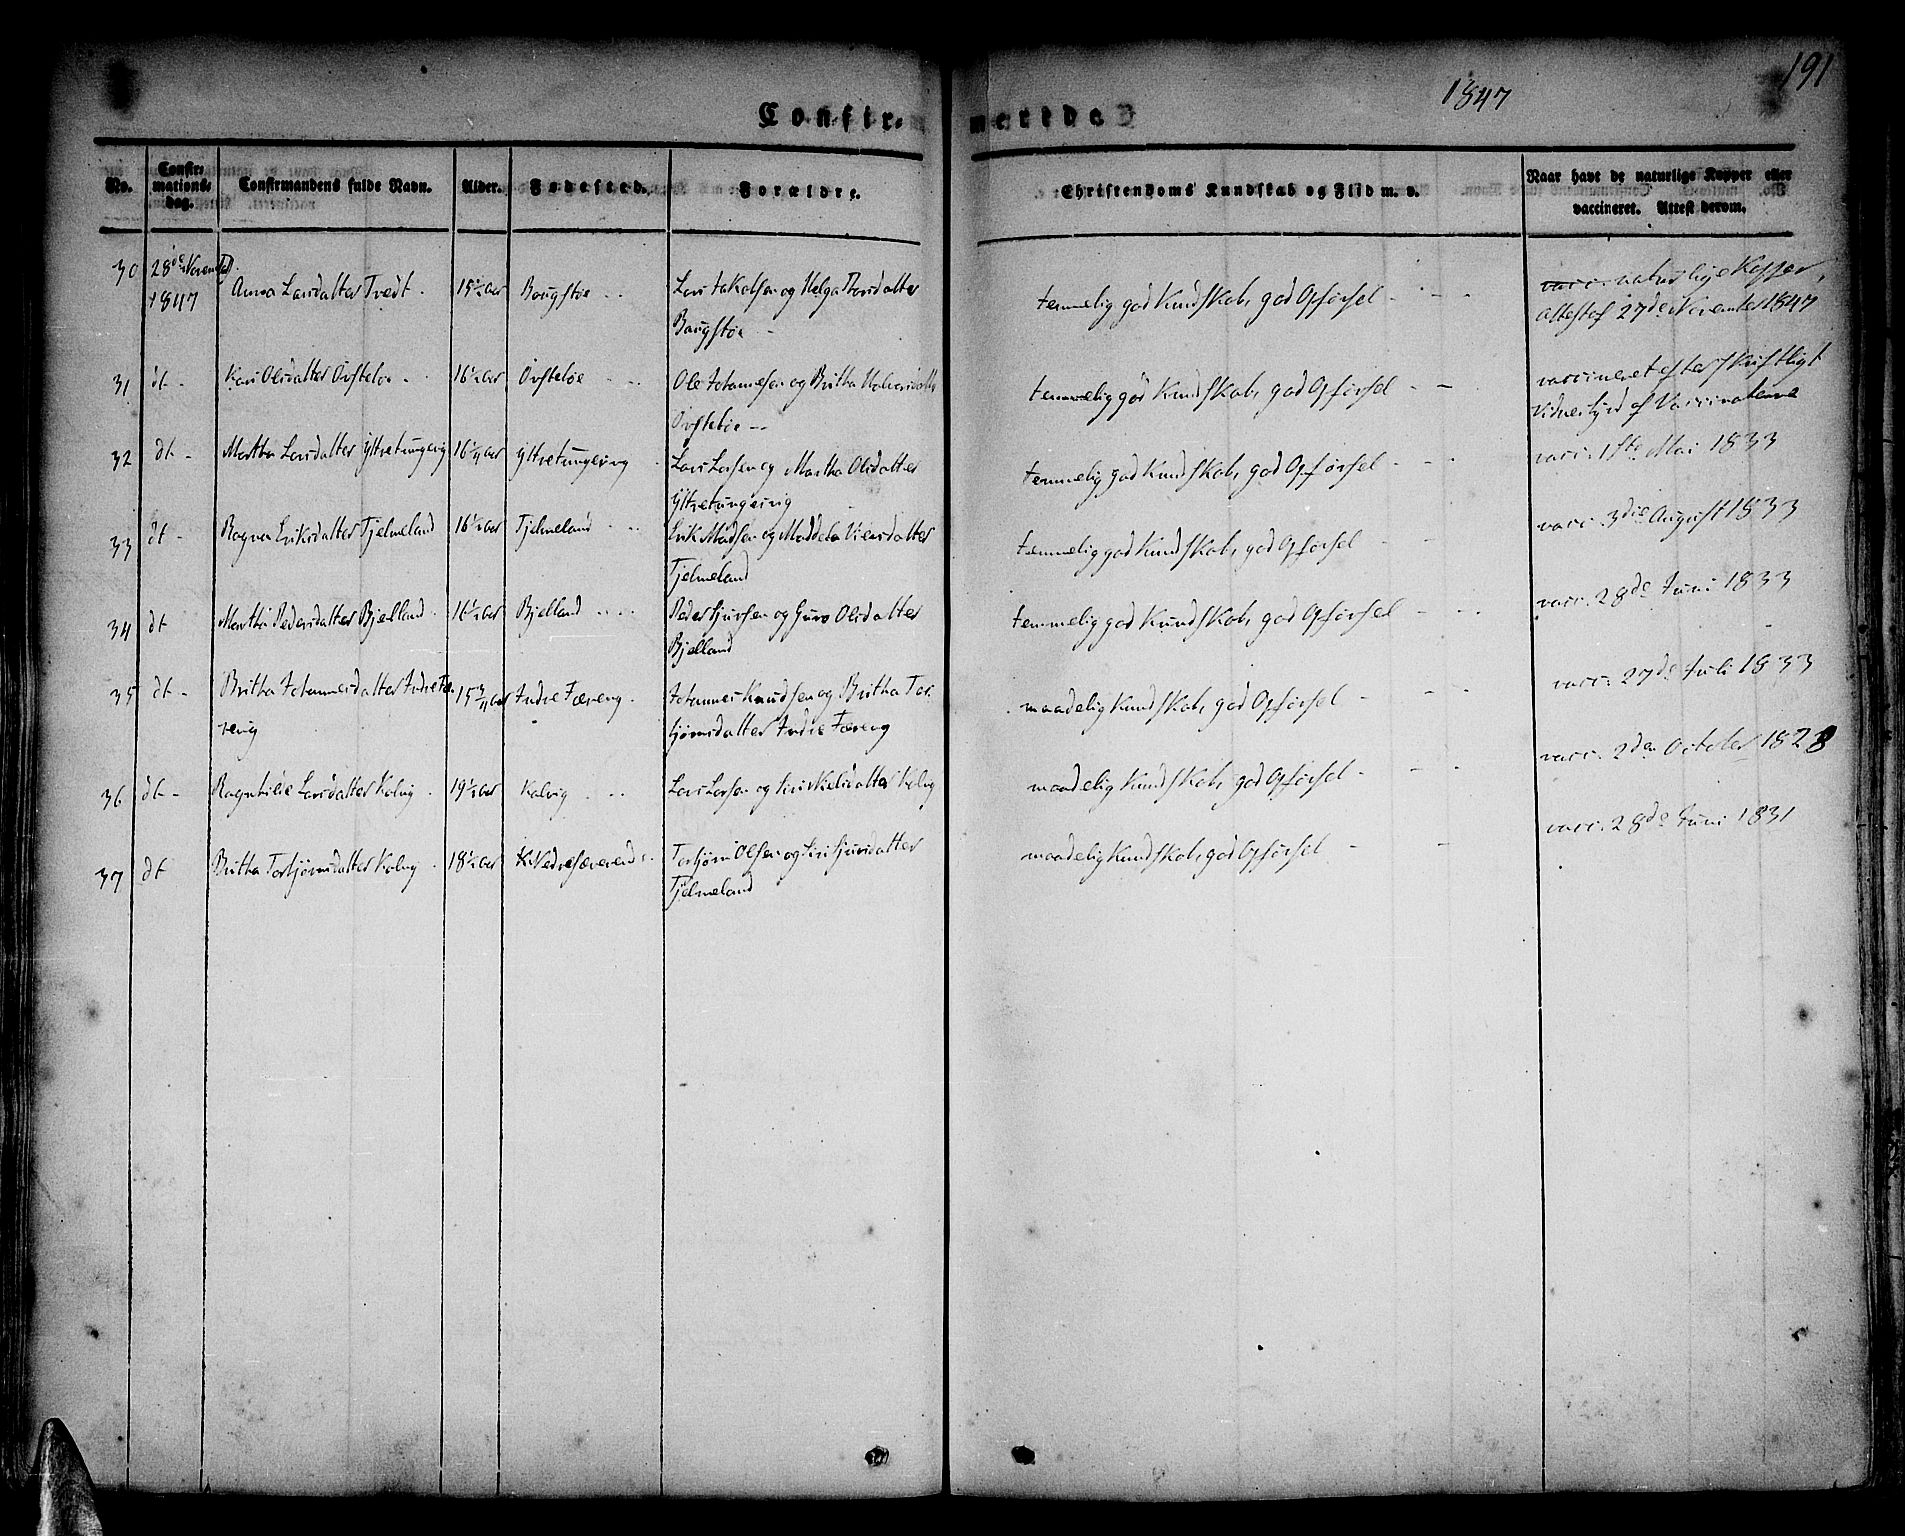 191
1847
Confirmerede
No.
Confir-
mations-
dag.
Confirmandens fulde Navn.
Alder.
Fødested.
Forældre.
Christendoms Kundskab og Flid m. v.
Naar havt de naturlige Kopper eller
vaccineret. Attest derom.
30 28de Novemb
1847 Anna Larsdatter Tvedt. 15½ Aar Bougstøe Lars Jakobsen og Helga
Bougstøe temmelig god Kundskab, god Opførsel naturlige Kopper,
Attest af 27de November 1847
31 dt Kari Olsdatter Øvstebøe 16½ Aar Øvstebøe Ole Johannesen og Britha
Øvstebøe temmelig god Kundskab, god Opførsel vaccineret efter skriftligt
Vidnesbyrd af Vaccinateure
32 dt Martha Larsdatter 16¼ Aar Lars Larsen og Martha Olsdatter
temmelig god Kundskab, god Opførsel vacc. 1ste Mai 1833
33 dt Ragna Eriksdatter Tjelmeland 16½ Aar Tjelmeland Erik Madsen og
Tjelmeland temmelig god Kundskab, god Opførsel vacc. 3die August 1833
34 dt Martha Pedersdatter Bjelland 16½ Aar Bjelland Peder Sjursen og Guro Olsdatter
Bjelland temmelig god Kundskab, god Opførsel vacc. 28de Juni 1833
35 dt Britha Johannesdatter Indre Fæ-
reng 15¾ Aar Indre Færeng. Johannes Knudsen og Britha Tor-
bjørnsdatter Indre Færeng maadelig Kundskab, god Opførsel vacc. 27de Juli 1833
36 dt Ragnhilde Larsdatter Kalvig 19½ Aar Kalvig Lars Larsen og Siri Kalvig
maadelig Kundskab, god Opførsel vacc. 2den October 1828
37 dt Britha Torbjørnsdatter Kalvig 18½ Aar Torbjørn Olsen og Siri Sjursdatter
Tjelmeland maadelig Kundskab, god Opførsel vacc. 28de Juni 1831